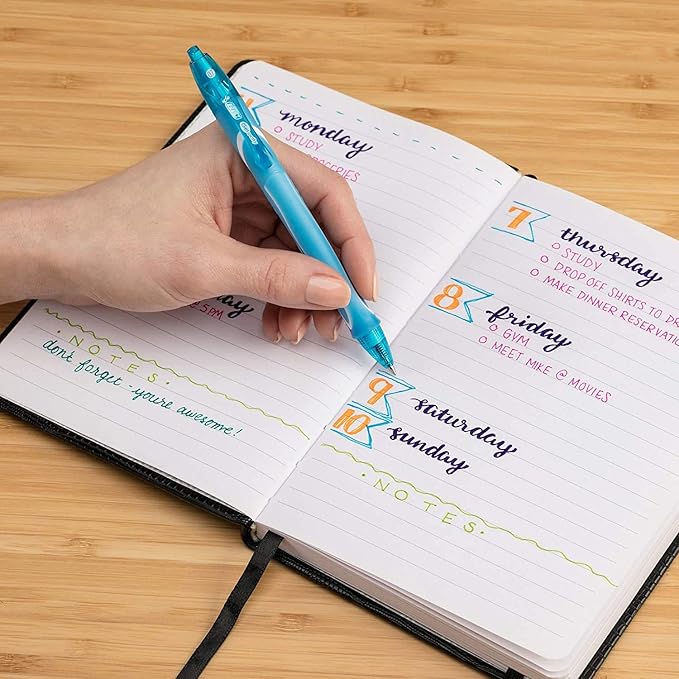 monday
STUDY
GROCERIES
day
5PM
NOTES
don't forget - you're awesome!
7 thursday
STUDY
DROP OFF SHIRTS TO DR
MAKE DINNER RESERVATION
8 friday
GYM
MEET MIKE @ MOVIES
9 saturday
10 sunday
NOTES